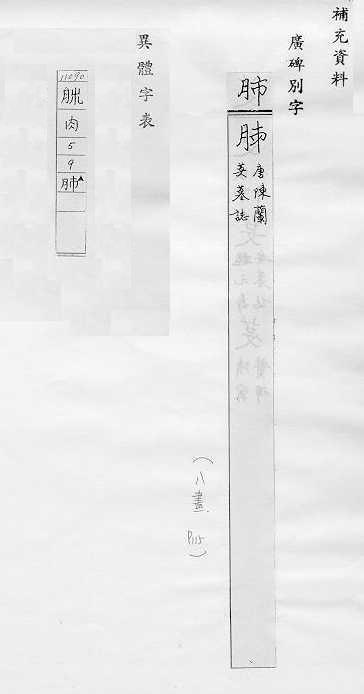 補充資料
廣碑別字
肺
唐陳蘭
英墓誌
(八畫 P115)
異體字表
11090
肉
5
9
肺